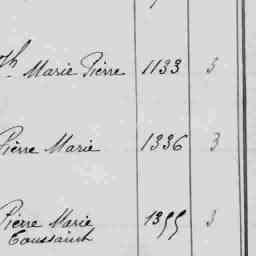 th Marie Pierre 1133 3
Pierre Marie 1336 3
Pierre Marie 1355 3
Toussaint